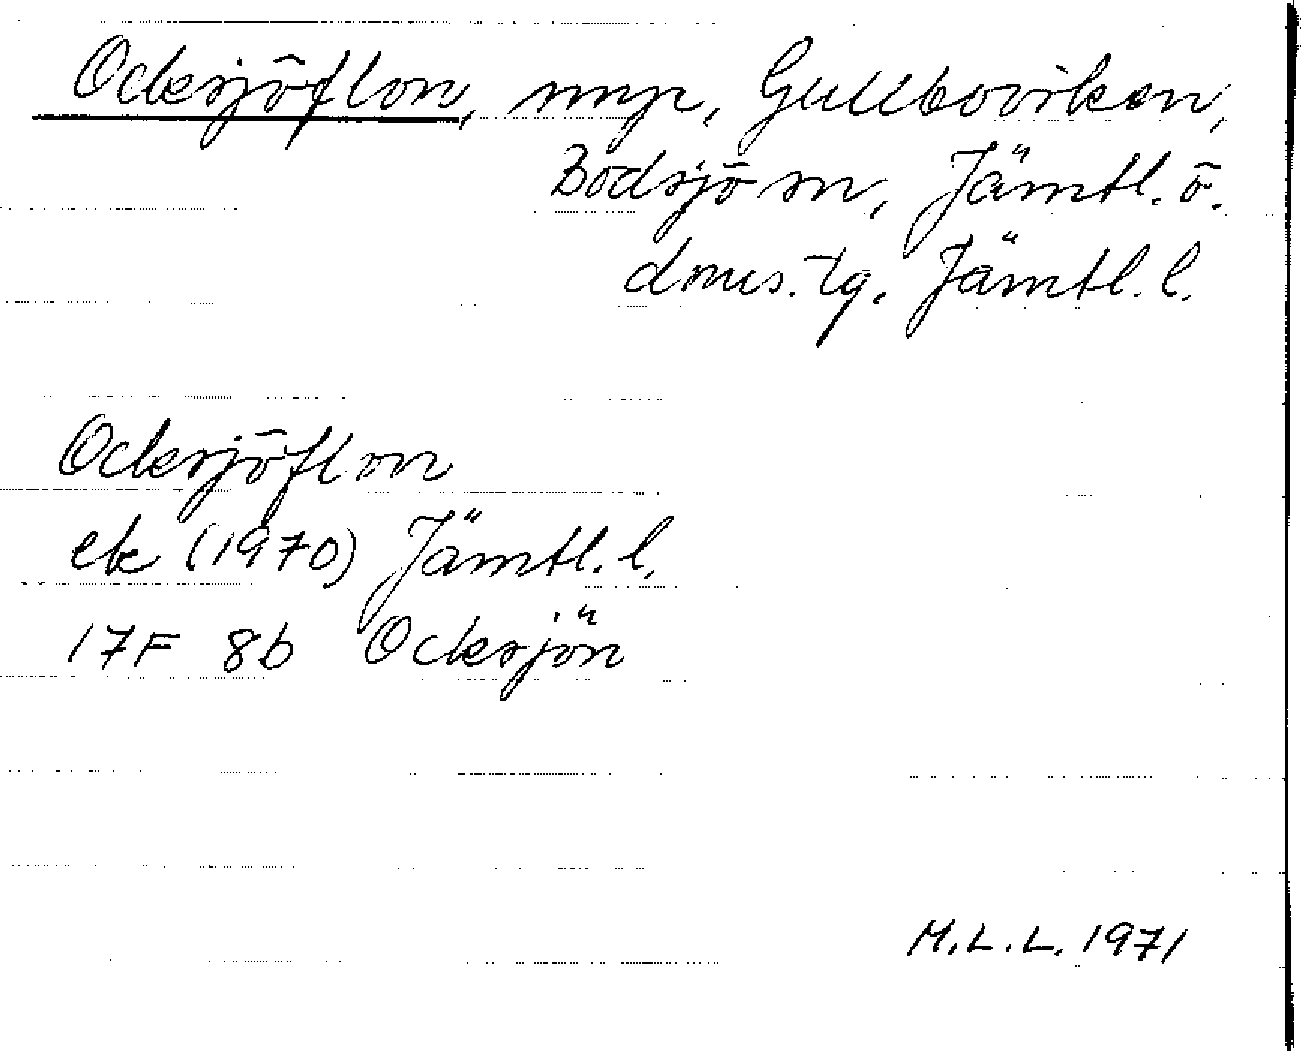 Ocksjöflon, myr, Gullboviken,
Bodsjö sn, Jämtl. ö.
doms.-tg. Jämtl. l.
Ocksjöflon
ek (1970) Jämtl. l.
17F 8b Ocksjön
M.L.L. 1971